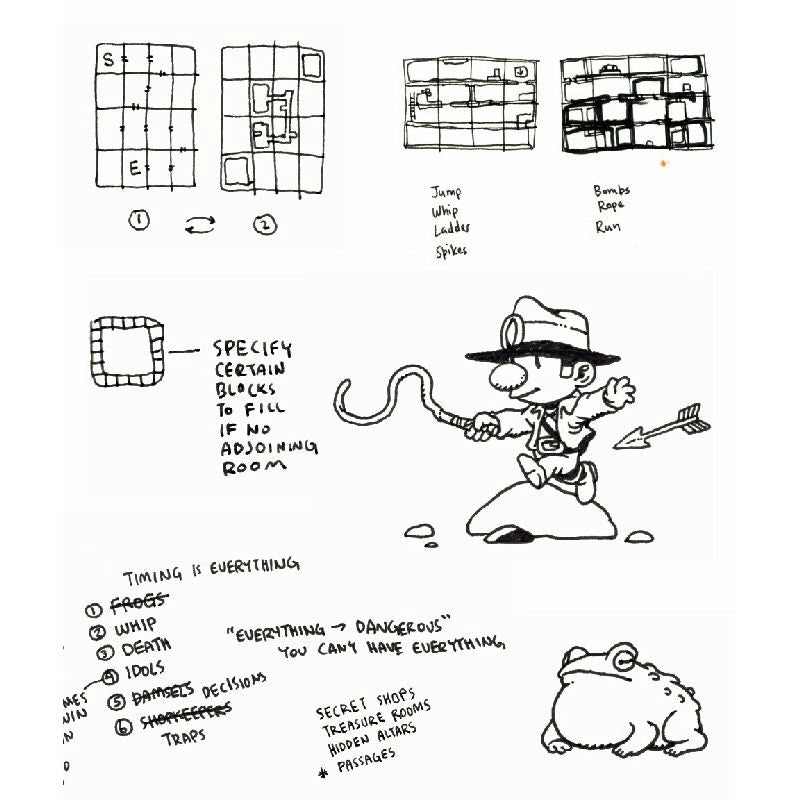 S
E
①
②
Jump
Whip
Ladder
Spikes
Bombs
Rope
Run
SPECIFY
CERTAIN
BLOCKS
TO FILL
IF NO
ADJOINING
ROOM
TIMING IS EVERYTHING
① FROGS
② WHIP
③ DEATH
④ IDOLS
⑤ DAMSELS DECISIONS
⑥ SHOPKEEPERS
TRAPS
"EVERYTHING → DANGEROUS"
YOU CAN'T HAVE EVERYTHING,
SECRET SHOPS
TREASURE ROOMS
HIDDEN ALTARS
* PASSAGES